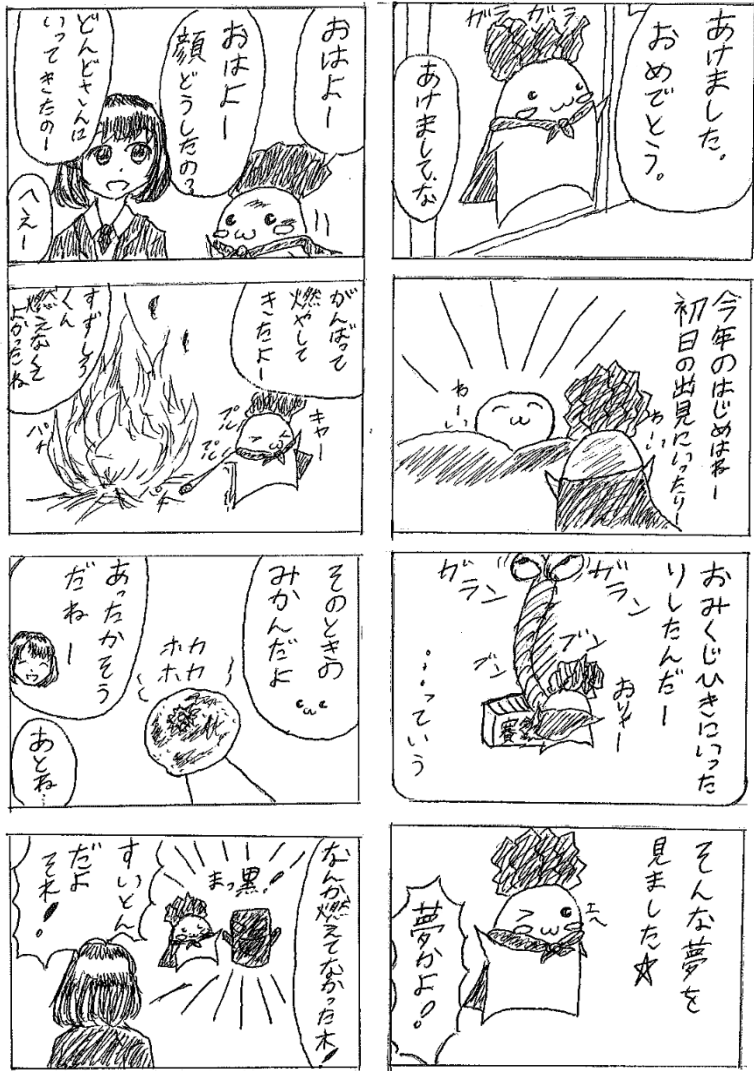 あけました。
おめでとう。
ガラガラ
あけまして、な
今年のはじめはねー
初日の出見にいったりー
わーいっ
わーいっ
おみくじひきにいった
りしたんだー
ガラン
ガラン
ブン
ブン
おりゃー
賽銭
・・・っていう
そんな夢を
見ました☆
エヘ
夢かよ!
おはよー
おはよー
顔どうしたの?
どんどさんに
いってきたのー
へえー
がんばって
燃やして
きたよー
キャー
プルプル
パチ
パチ
すずしろ
くん
燃えなくて
よかったね
そのときの
みかんだよ
ホカ
ホカ
あったかそう
だねー
あとね…
なんか燃えてなかった木!
まっ黒!
すいとん
だよ
それ!